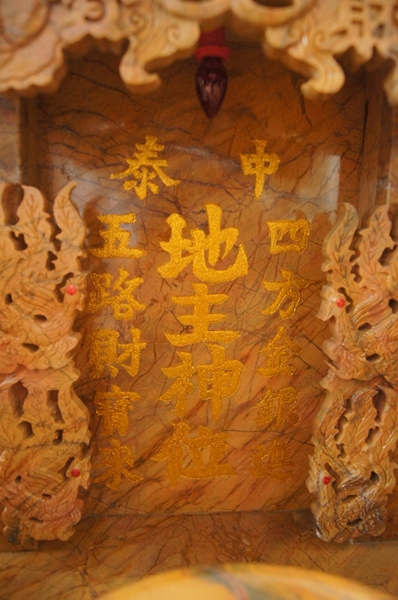 中泰
四方金銀進
地主神位
五路財寶來